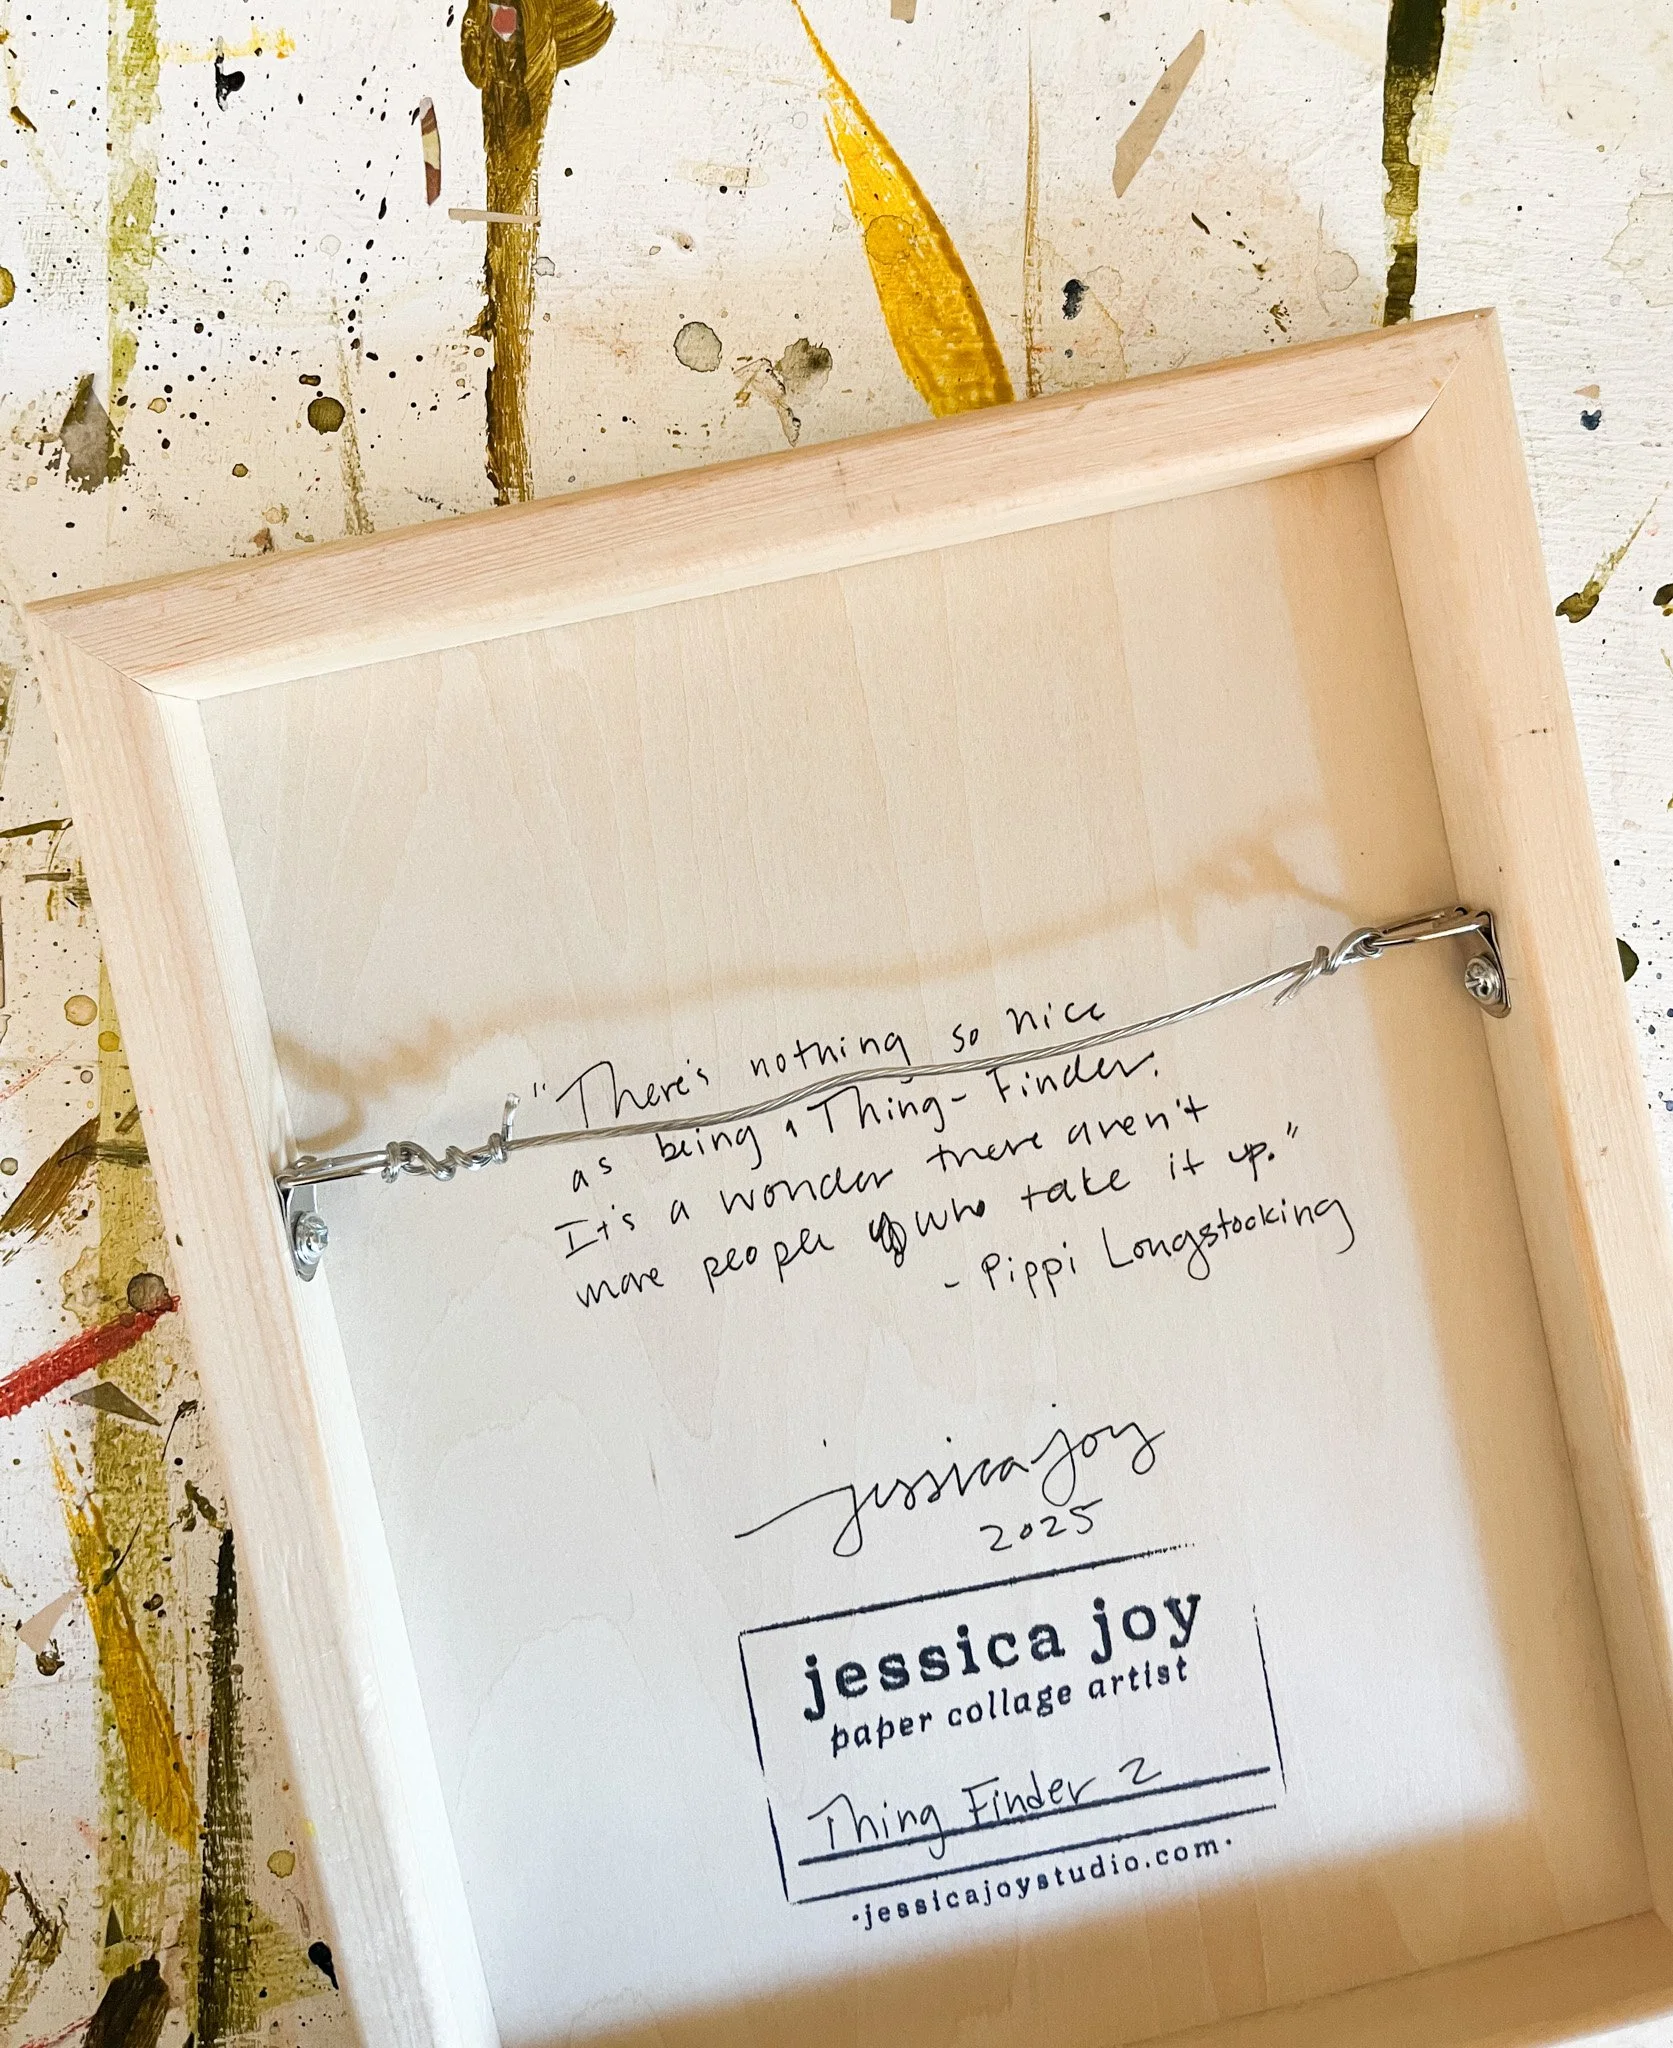 "There's nothing so nice
as being a Thing-Finder.
It's a wonder there aren't
more people who take it up."
- Pippi Longstocking
jessica joy
2025
jessica joy
paper collage artist
Thing Finder 2
·jessicajoystudio.com·